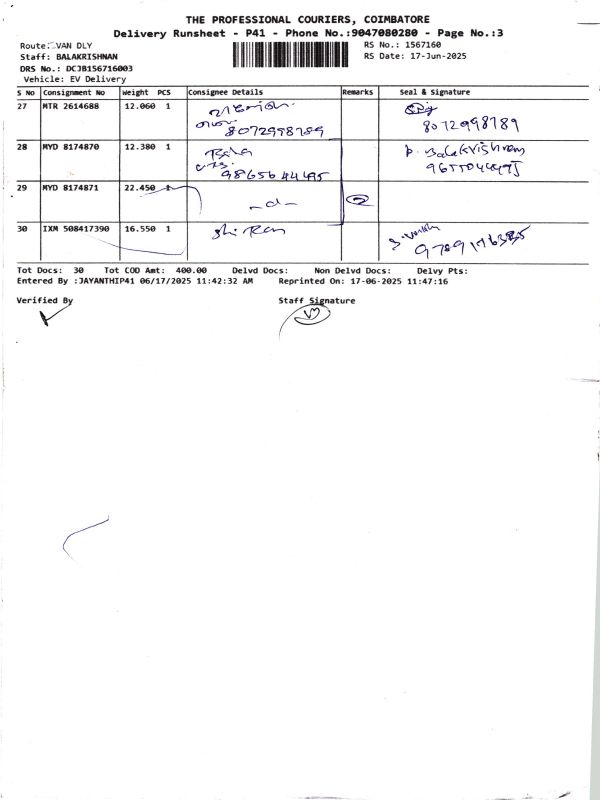 THE PROFESSIONAL COURIERS, COIMBATORE
Delivery Runsheet - P41 - Phone No.:9047080280 - Page No.:3
Route: VAN DLY
RS No.: 1567160
Staff: BALAKRISHNAN
RS Date: 17-Jun-2025
DRS No.: DCJB156716003
Vehicle: EV Delivery
S No Consignment No Weight PCS Consignee Details Remarks Seal & Signature
27 MTR 2614688 12.060 1
8072998789 8072998789
28 MYD 8174870 12.380 1 Bala P. Balakrishnan
29 MYD 8174871 22.450 1 -d- 2
30 IXM 508417390 16.550 1
Tot Docs: 30 Tot COD Amt: 400.00 Delvd Docs: Non Delvd Docs: Delvy Pts:
Entered By :JAYANTHIP41 06/17/2025 11:42:32 AM Reprinted On: 17-06-2025 11:47:16
Verified By Staff Signature